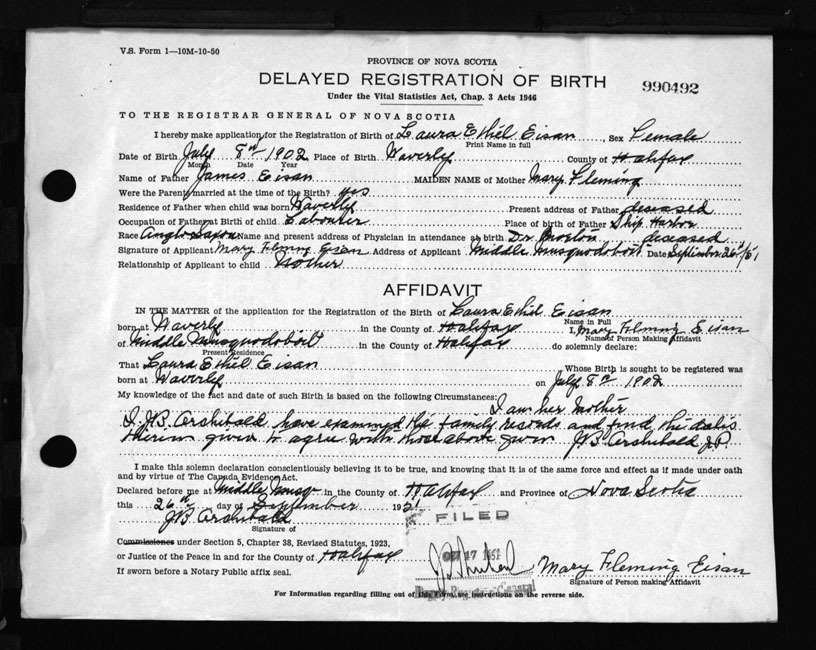 V.S. Form 1—10M-10-50
PROVINCE OF NOVA SCOTIA
DELAYED REGISTRATION OF BIRTH
990492
Under the Vital Statistics Act, Chap. 3 Acts 1946
TO THE REGISTRAR GENERAL OF NOVA SCOTIA
I hereby make application for the Registration of Birth of Laura Ethel Eisan, Sex Female
Print Name in full
Date of Birth July 8th 1902 Place of Birth Waverly County of Halifax
Month Date Year
Name of Father James Eisan MAIDEN NAME of Mother Mary Fleming
Were the Parents married at the time of the Birth? yes
Residence of Father when child was born Waverly Present address of Father deseased
Occupation of Father at Birth of child Labourer Place of birth of Father Ship Harbor
Race Anglo Saxon Name and present address of Physician in attendance at birth Dr Morton deseased
Signature of Applicant Mary Fleming Eisan Address of Applicant Middle Musquodoboit Date September 26th/51
Relationship of Applicant to child Mother
AFFIDAVIT
IN THE MATTER of the application for the Registration of the Birth of Laura Ethel Eisan
Name in Full
born at Waverly in the County of Halifax I, Mary Fleming Eisan
Name of Person Making Affidavit
of Middle Musquodoboit in the County of Halifax do solemnly declare:
Present Residence
That Laura Ethel Eisan Whose Birth is sought to be registered was
born at Waverly on July 8th 1902
My knowledge of the fact and date of such Birth is based on the following Circumstances: I am her Mother
I JB Archibald have examined the family records and find the dates
therein given to agree with those above given JB Archibald J.P.
I make this solemn declaration conscientiously believing it to be true, and knowing that it is of the same force and effect as if made under oath
and by virtue of The Canada Evidence Act.
Declared before me at Middle Musq in the County of Halifax and Province of Nova Scotia
this 26th day of September 1951
JB Archibald
Signature of
FILED
Commissioner under Section 5, Chapter 38, Revised Statutes, 1923,
or Justice of the Peace in and for the County of Halifax
OCT 17 1951
Mary Fleming Eisan
If sworn before a Notary Public affix seal.
Deputy Registrar General
Signature of Person making Affidavit
For Information regarding filling out of this Form, see instructions on the reverse side.